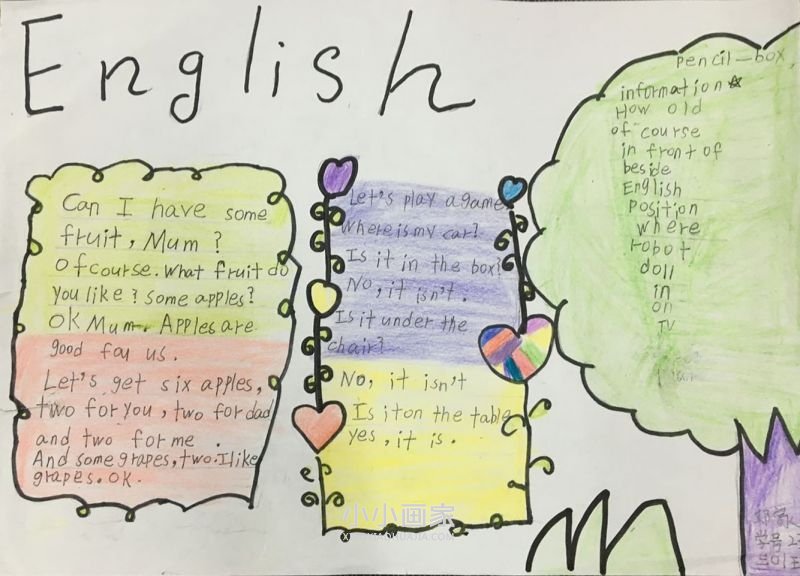 English
Can I have some
fruit, Mum ?
Of course. What fruit do
you like ? Some apples?
OK Mum. Apples are
good fou us.
Let's get six apples,
two for you, two for dad
and two for me .
And some grapes, two. I like
grapes. OK.
Let's play a game
Where is my car?
Is it in the box?
No, it isn't.
Is it under the
chair?
No, it isn't
Is it on the table
yes, it is.
pencil-box,
information
How old
of course
in front of
beside
English
Position
where
robot
doll
in
on
TV
学号 2
小小画家
XIAOXIAOHUAJIA.COM